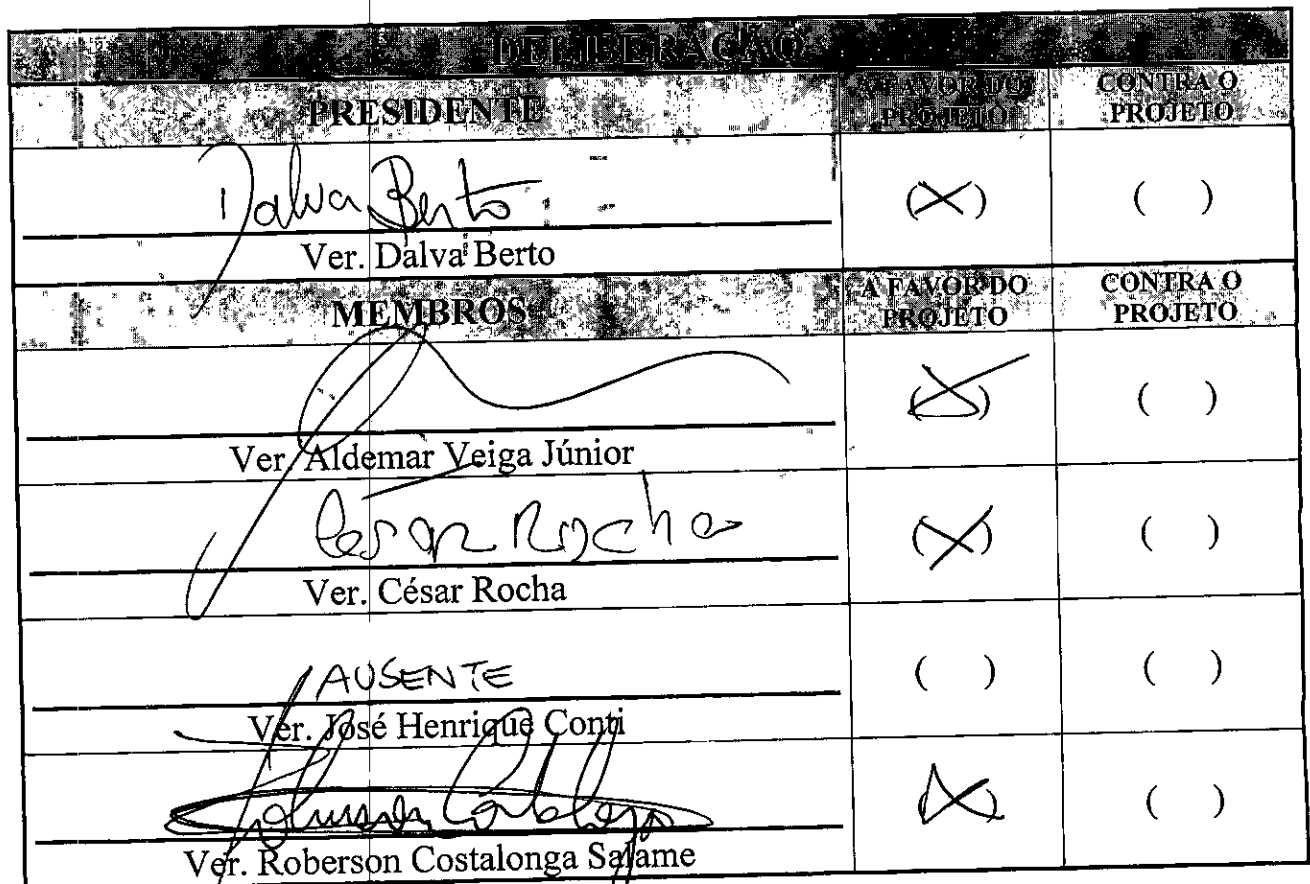 DELIBERAÇÃO
PRESIDENTE
A FAVOR DO
PROJETO
CONTRA O
PROJETO
Dalva Berto
(X)
( )
Ver. Dalva Berto
MEMBROS
A FAVOR DO
PROJETO
CONTRA O
PROJETO
(X)
( )
Ver. Aldemar Veiga Júnior
Cesar Rocha
(X)
( )
Ver. César Rocha
AUSENTE
( )
( )
Ver. José Henrique Conti
(X)
( )
Ver. Roberson Costalonga Salame